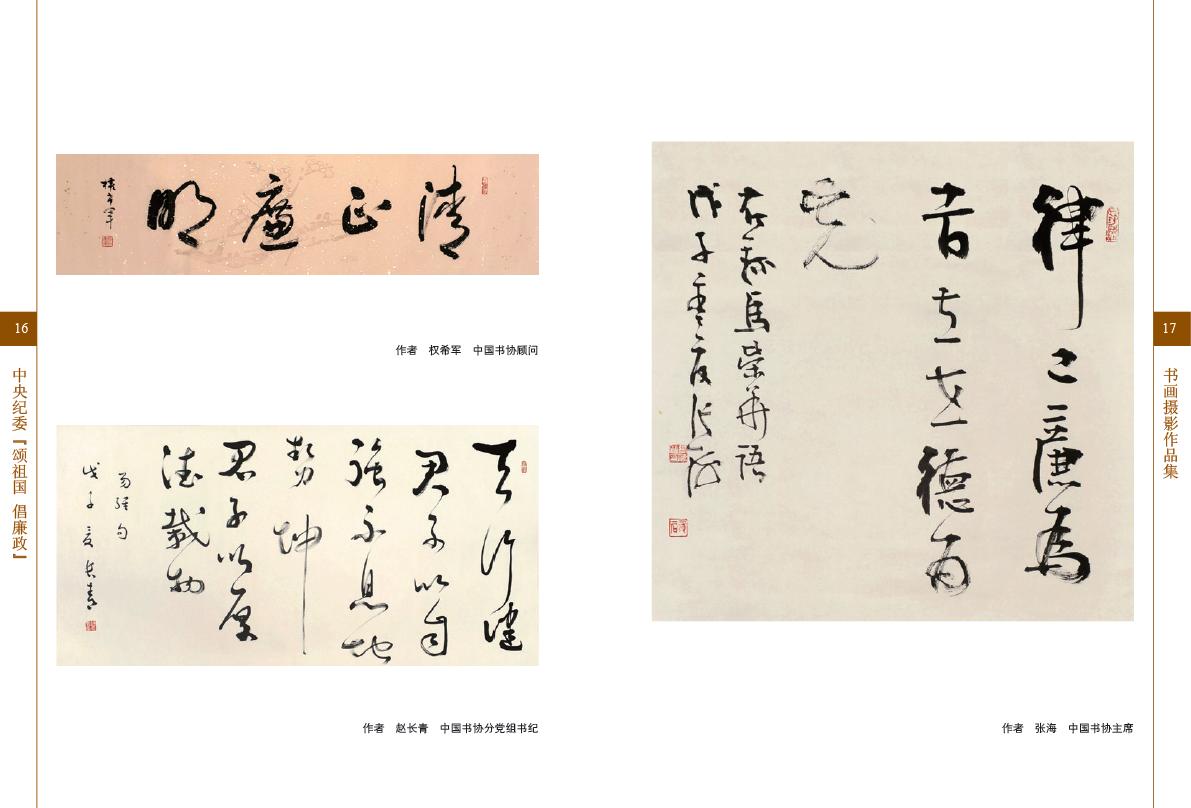 16
中央纪委『颂祖国 倡廉政』
清正廉明
作者 权希军 中国书协顾问
天行健
君子以自
強不息地
勢坤
君子以厚
德載物
易經句
戊子夏 長青
作者 赵长青 中国书协分党组书纪
律己廉為
首立世德為
先
右錄馬榮華語
戊子夏張海
作者 张海 中国书协主席
17
书画摄影作品集